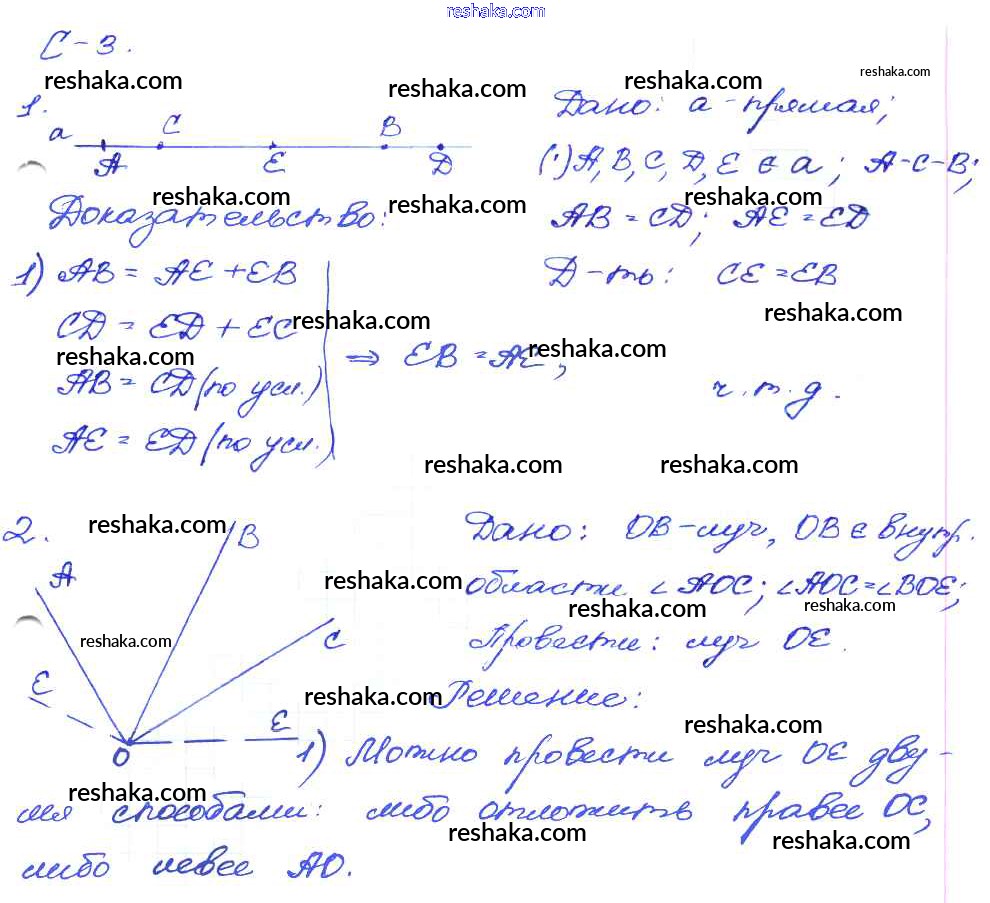 reshaka.com
С-3.
reshaka.com reshaka.com reshaka.com reshaka.com
1.
a A C E B D
Дано: a - прямая;
(·) A, B, C, D, E ∈ a; A-C-B;
reshaka.com reshaka.com reshaka.com
Доказательство:
AB = CD; AE = ED
1) AB = AE + EB
Д-ть: CE = EB
CD = ED + EC
reshaka.com reshaka.com
reshaka.com reshaka.com
⇒ EB = AE;
AB = CD (по усл.)
ч.т.д.
AE = ED (по усл.)
reshaka.com reshaka.com
2.
reshaka.com
A B C E E O
Дано: OB - луч, OB ∈ внутр.
reshaka.com
области ∠AOC; ∠AOC = ∠BOE;
reshaka.com reshaka.com
reshaka.com
Провести: луч OE.
reshaka.com
Решение:
reshaka.com
1) Можно провести луч OE дву-
reshaka.com
мя способами: либо отложить правее OC,
reshaka.com reshaka.com
либо левее AO.